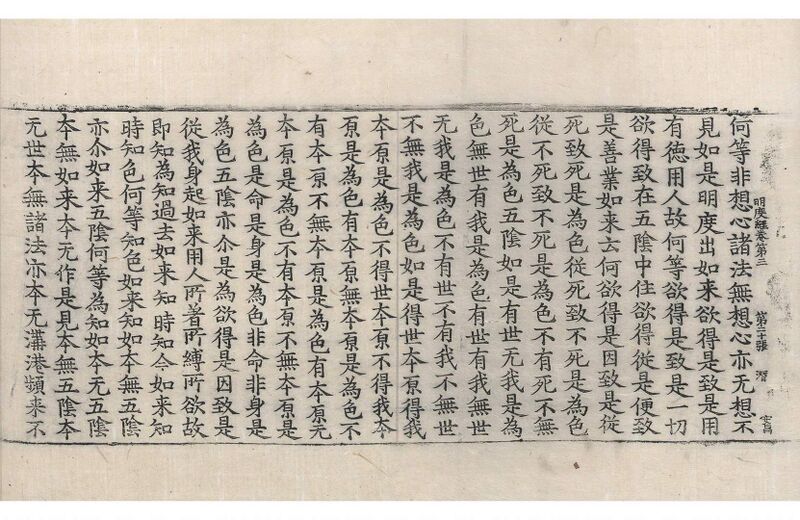 明度經卷第三
何等非想心諸法無想心亦无想不
見如是明度出如来欲得是致是用
有徳用人故何等欲得是致是一切
欲得致在五陰中住欲得従是便致
是善業如来云何欲得是因致是従
死致死是為色従死致不死是為色
従不死致不死是為色不有死不無
死是為色五陰如是有世无我是為
色無世有我是為色有世有我無世
无我是為色不有世不有我不無世
不無我是為色如是得世本原得我
本原是為色不得世本原不得我本
原是為色有本原無本原是為色不
有本原不無本原是為色有本原无
本原是為色不有本原不無本原是
為色是命是身是為色非命非身是
為色五陰亦尒是為欲得是因致是
従我身起如来用人所著所縛所欲故
即知為知過去如来知時知今如来知
時知色何等知色如来知如本無五陰
亦尒如来五陰何等為知如本无五陰
本無如来本无作是見本無五陰本
无世本無諸法亦本无溝港頻来不